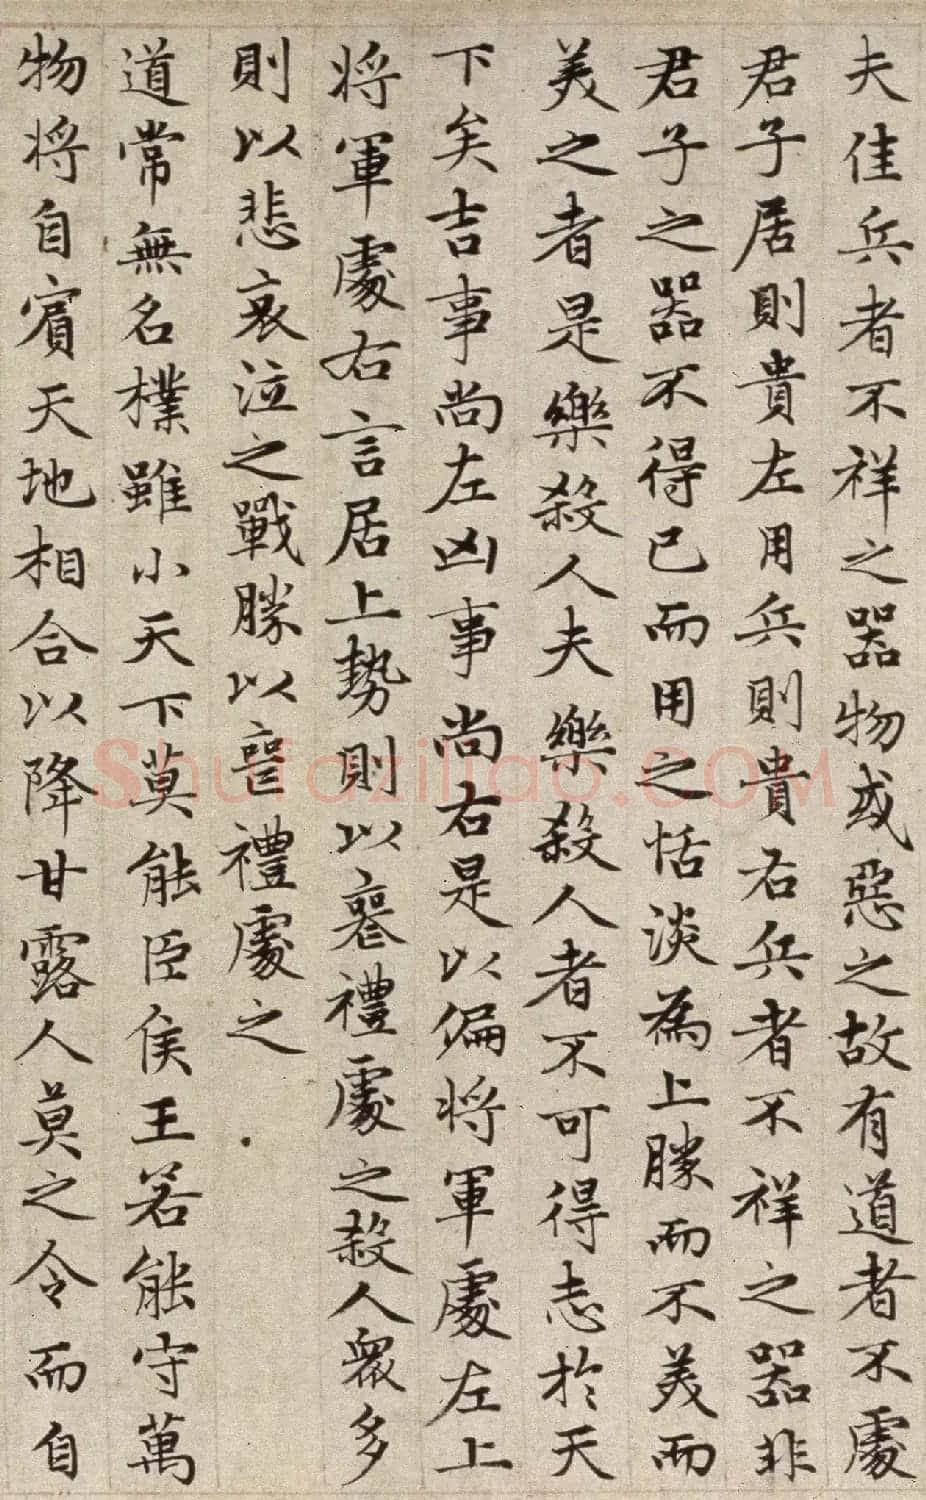 夫佳兵者不祥之器物或惡之故有道者不處
君子居則貴左用兵則貴右兵者不祥之器非
君子之器不得已而用之恬淡為上勝而不美而
美之者是樂殺人夫樂殺人者不可得志於天
下矣吉事尚左凶事尚右是以偏將軍處左上
將軍處右言居上勢則以喪禮處之殺人眾多
則以悲哀泣之戰勝以喪禮處之
道常無名樸雖小天下莫能臣侯王若能守萬
物將自賓天地相合以降甘露人莫之令而自
Shufaziliao.COM